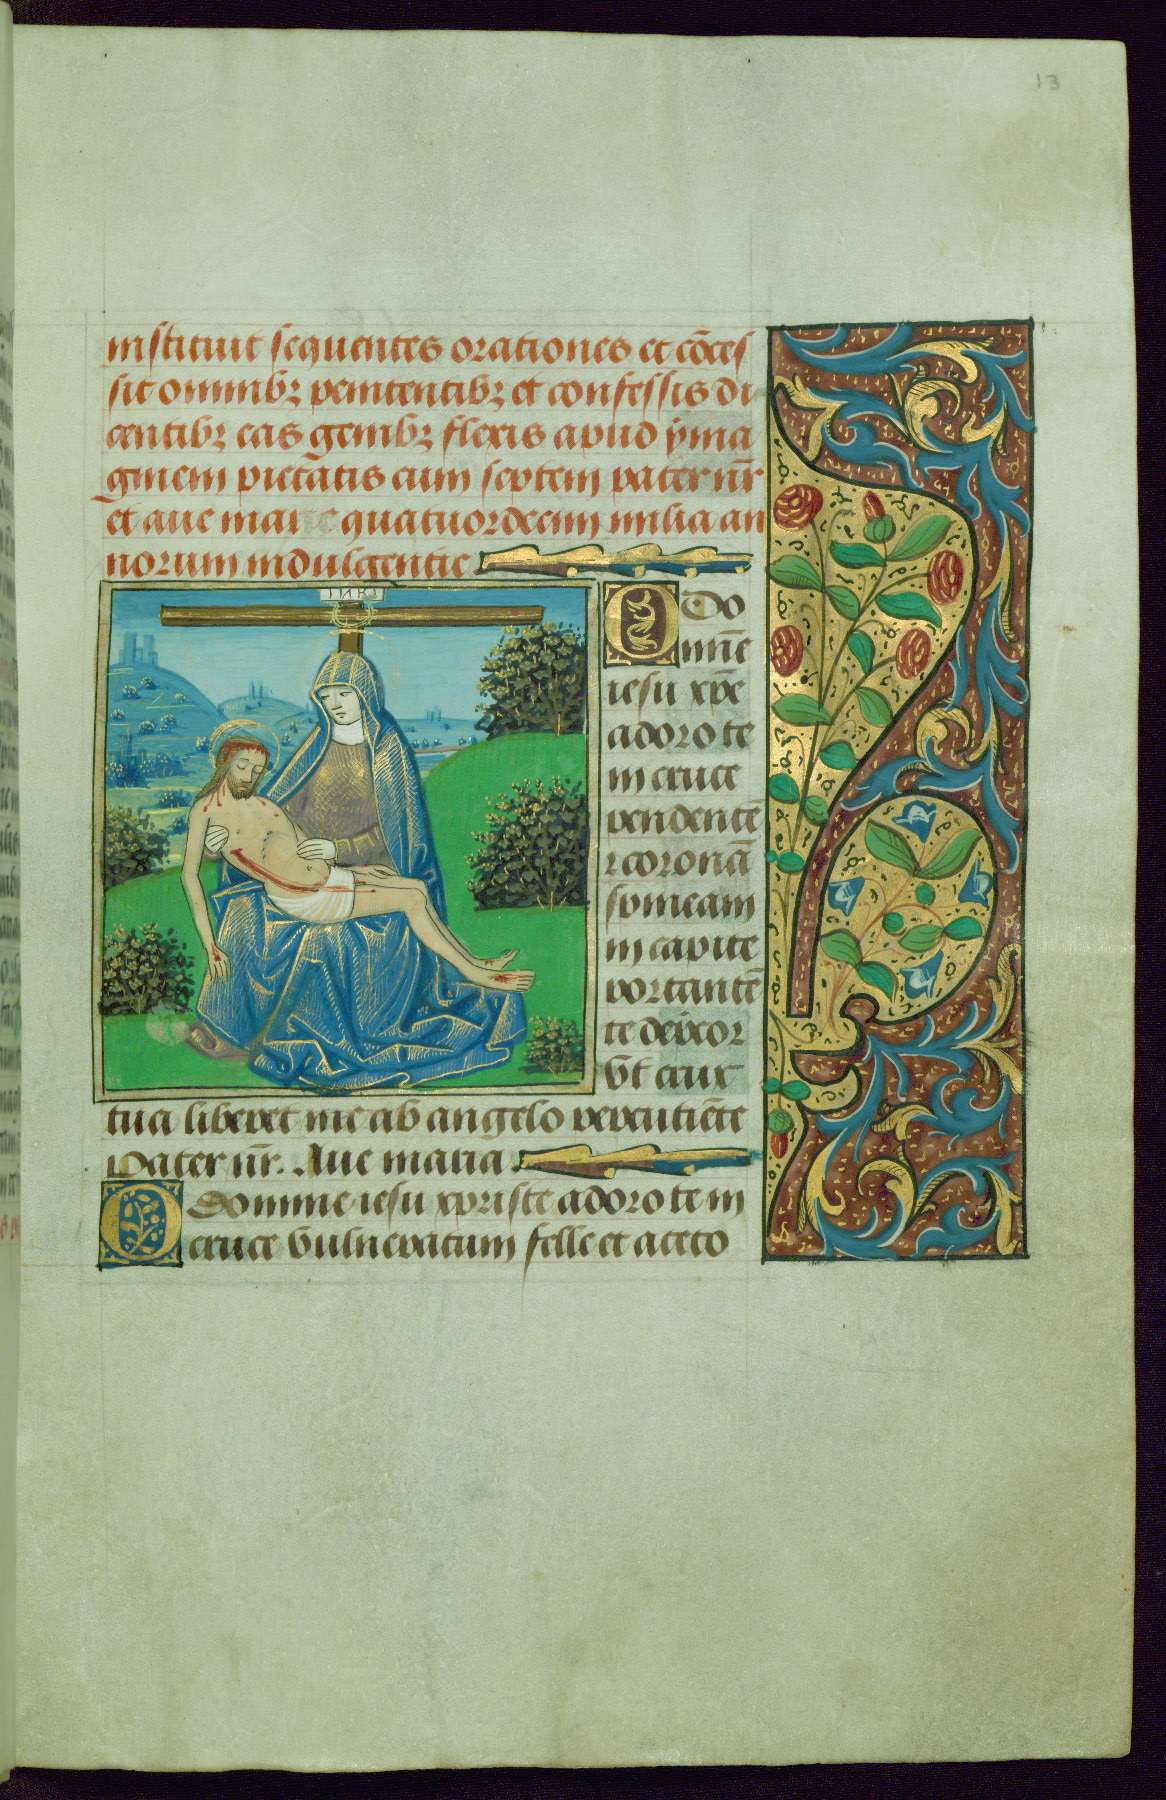 13
instituit sequentes orationes et cōces
sit omnibꝫ penitentibꝫ et confessis di
centibꝫ eas genibꝫ flexis apud yma
ginem pietatis cum septem pater nr̄
et aue marie quatuordecim milia an
norum indulgentie
INRI
O Do
mīe
iesu xp̄e
adoro te
in cruce
pendentē
⁊ coronā
spineam
in capite
portantē
te deꝓcor
vt crux
tua liberet me ab angelo percutiēte
Pater nr̄. Aue maria
O Domine iesu xpriste adoro te in
cruce vulneratum felle et aceto